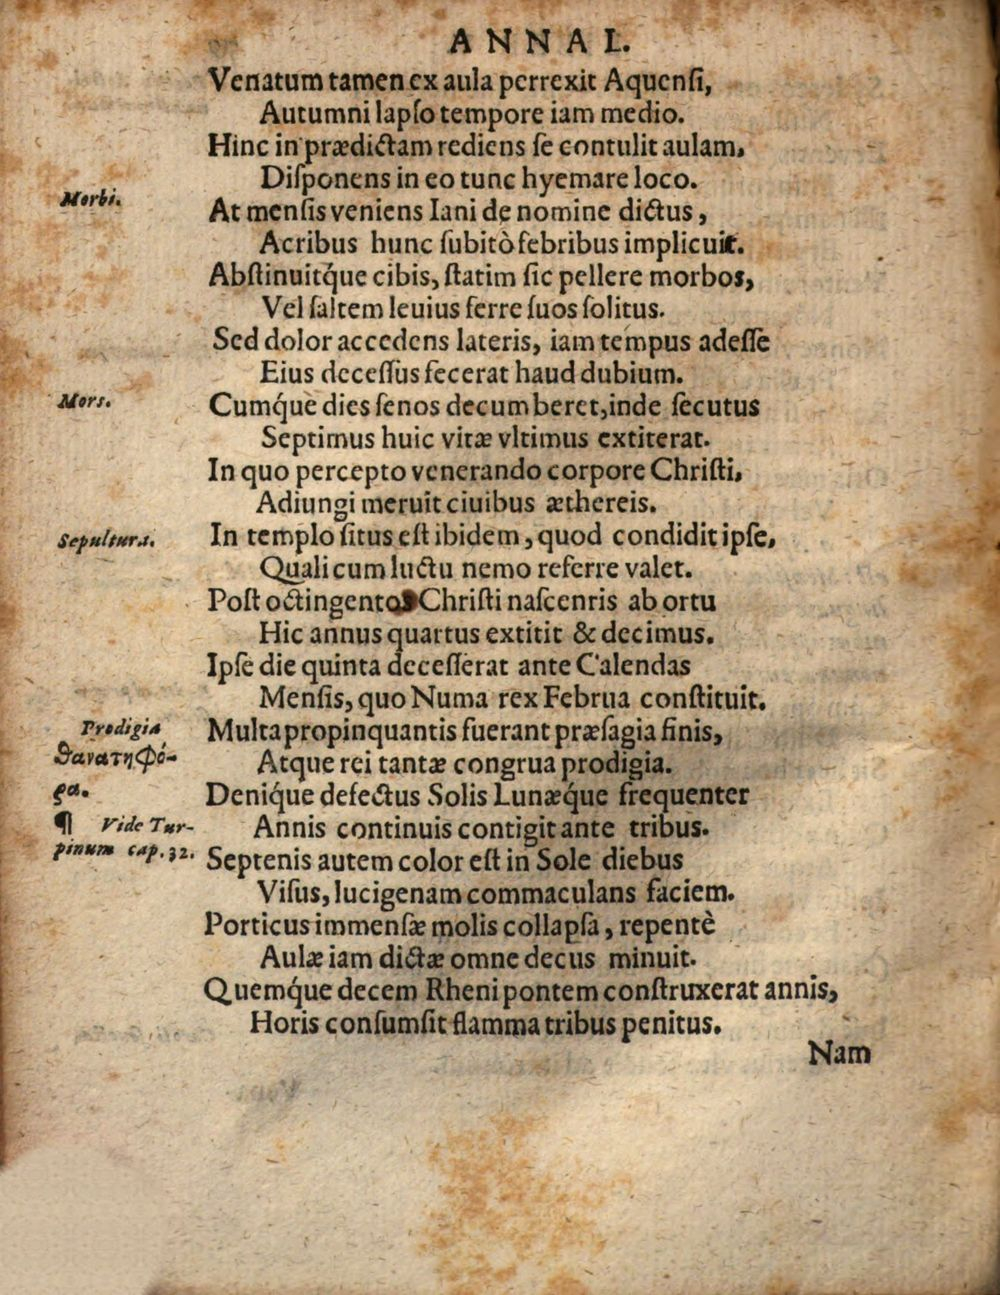 ANNAL.
Venatum tamen ex aula perrexit Aquenſi,
Autumni lapſo tempore iam medio.
Hinc in prædictam rediens ſe contulit aulam,
Diſponens in eo tunc hyemare loco.
Morbi.
At menſis veniens Iani de nomine dictus,
Acribus hunc ſubitò febribus implicuit.
Abſtinuitq́ue cibis, ſtatim ſic pellere morbos,
Vel ſaltem leuius ferre ſuos ſolitus.
Sed dolor accedens lateris, iam tempus adeſſe
Eius deceſſus fecerat haud dubium.
Mors.
Cumq́ue dies ſenos decumberet, inde ſecutus
Septimus huic vitæ vltimus extiterat.
In quo percepto venerando corpore Chriſti,
Adiungi meruit ciuibus æthereis.
Sepultura.
In templo ſitus eſt ibidem, quod condidit ipſe,
Quali cum luctu nemo referre valet.
Poſt octingentos Chriſti naſcenris ab ortu
Hic annus quartus extitit & decimus.
Ipſe die quinta deceſſerat ante Calendas
Menſis, quo Numa rex Februa conſtituit.
Prodigia
Multa propinquantis fuerant præſagia finis,
θανατηφό-
Atque rei tantæ congrua prodigia.
ρα.
Deniq́ue defectus Solis Lunæq́ue frequenter
¶ Vide Tur-
Annis continuis contigit ante tribus.
pinum cap. 32.
Septenis autem color eſt in Sole diebus
Viſus, lucigenam commaculans faciem.
Porticus immenſæ molis collapſa, repentè
Aulæ iam dictæ omne decus minuit.
Quemq́ue decem Rheni pontem conſtruxerat annis,
Horis conſumſit flamma tribus penitus.
Nam